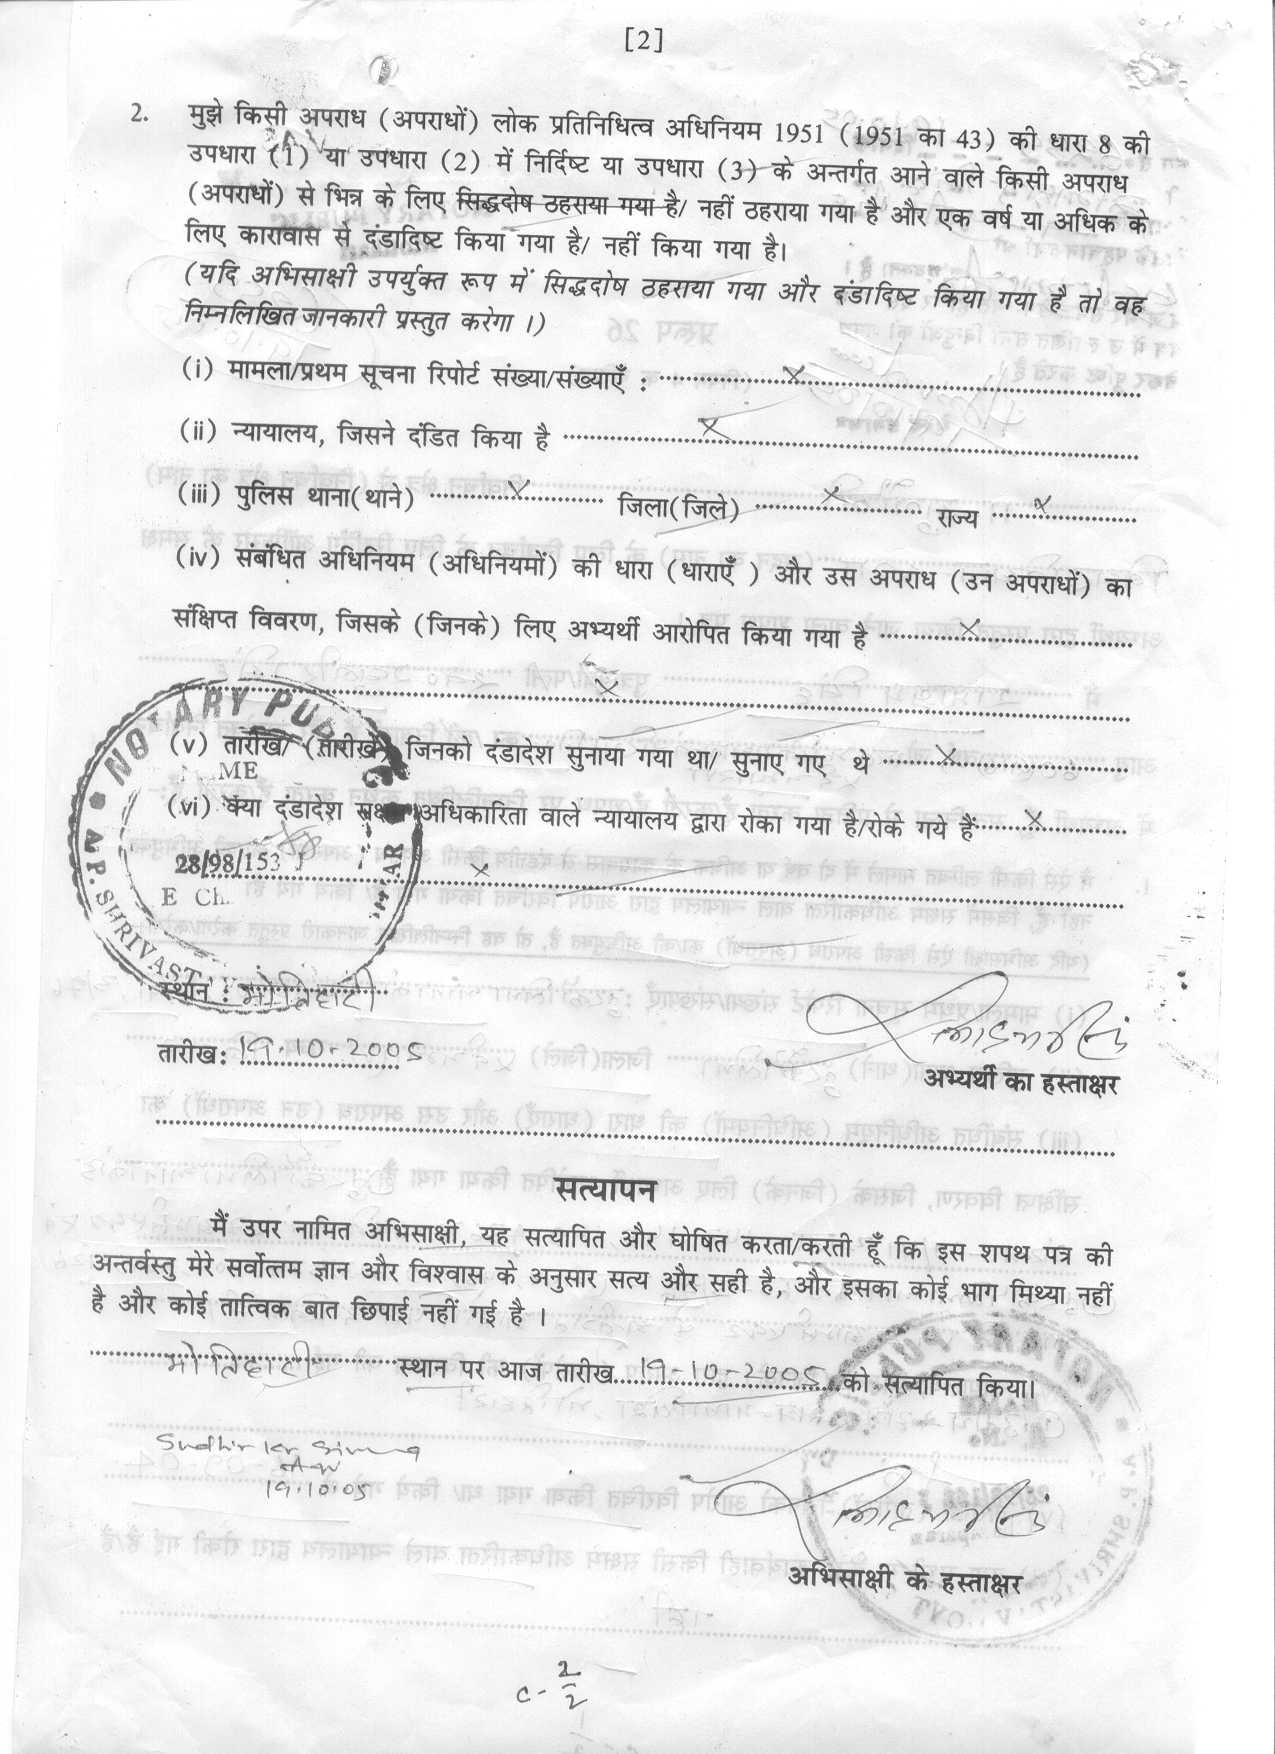 [2]
2. मुझे किसी अपराध (अपराधों) लोक प्रतिनिधित्व अधिनियम 1951 (1951 का 43) की धारा 8 की
उपधारा (1) या उपधारा (2) में निर्दिष्ट या उपधारा (3) के अन्तर्गत आने वाले किसी अपराध
(अपराधों) से भिन्न के लिए सिद्धदोष ठहराया गया है/ नहीं ठहराया गया है और एक वर्ष या अधिक के
लिए कारावास से दंडादिष्ट किया गया है/ नहीं किया गया है।
(यदि अभिसाक्षी उपर्युक्त रूप में सिद्धदोष ठहराया गया और दंडादिष्ट किया गया है तो वह
निम्नलिखित जानकारी प्रस्तुत करेगा ।)
(i) मामला/प्रथम सूचना रिपोर्ट संख्या/संख्याएँ : ........ X ........
(ii) न्यायालय, जिसने दंडित किया है ........ X ........
(iii) पुलिस थाना(थाने) ........ X ........ जिला(जिले) ........ X ........ राज्य ........ X ........
(iv) संबंधित अधिनियम (अधिनियमों) की धारा (धाराएँ ) और उस अपराध (उन अपराधों) का
संक्षिप्त विवरण, जिसके (जिनके) लिए अभ्यर्थी आरोपित किया गया है ........ X ........
........ X ........
NOTARY PUB
(v) तारीख/ (तारीखें) जिनको दंडादेश सुनाया गया था/ सुनाए गए थे ........ X ........
(vi) क्या दंडादेश सक्षम अधिकारिता वाले न्यायालय द्वारा रोका गया है/रोके गये हैं ........ X ........
28/98/153
........ X ........
A.P. SHRIVAST
स्थान : मोतिहारी
तारीख: 19.10-2005
अभ्यर्थी का हस्ताक्षर
सत्यापन
मैं उपर नामित अभिसाक्षी, यह सत्यापित और घोषित करता/करती हूँ कि इस शपथ पत्र की
अन्तर्वस्तु मेरे सर्वोत्तम ज्ञान और विश्वास के अनुसार सत्य और सही है, और इसका कोई भाग मिथ्या नहीं
है और कोई तात्विक बात छिपाई नहीं गई है ।
मोतिहारी ........ स्थान पर आज तारीख 19-10-2005 को सत्यापित किया।
Sudhir Kr
19.10.05
अभिसाक्षी के हस्ताक्षर
C- 2/2